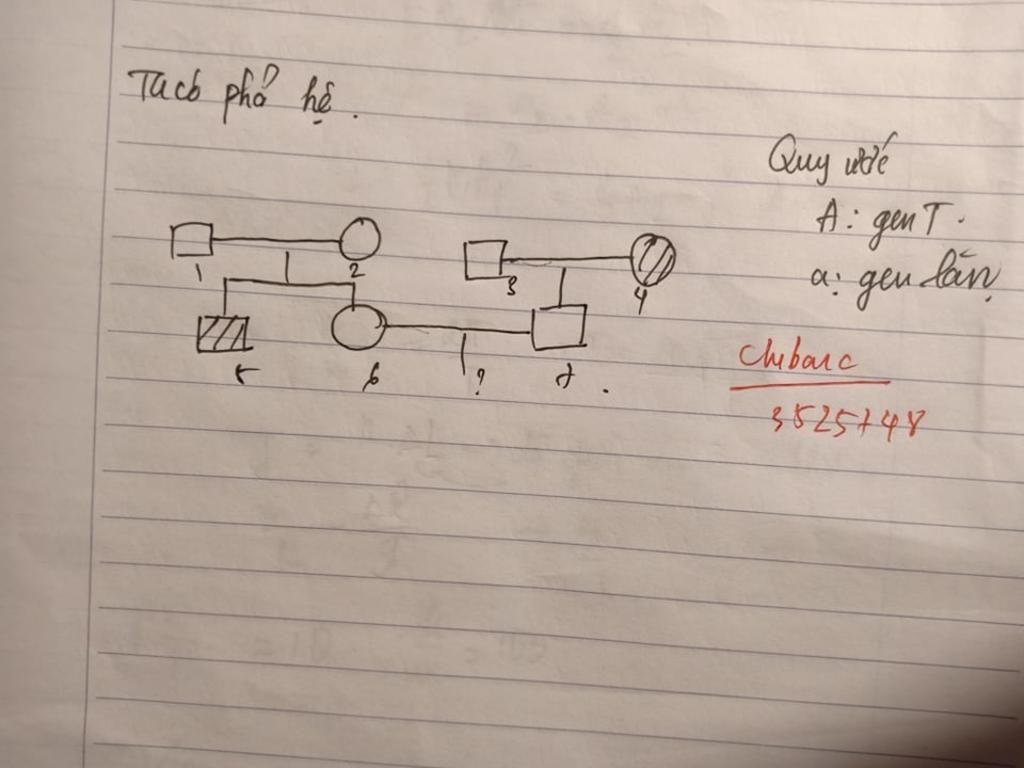 Ta có phổ hệ.
Quy ước
A: gen T.
a: gen lặn
1
2
3
4
5
6
?
7